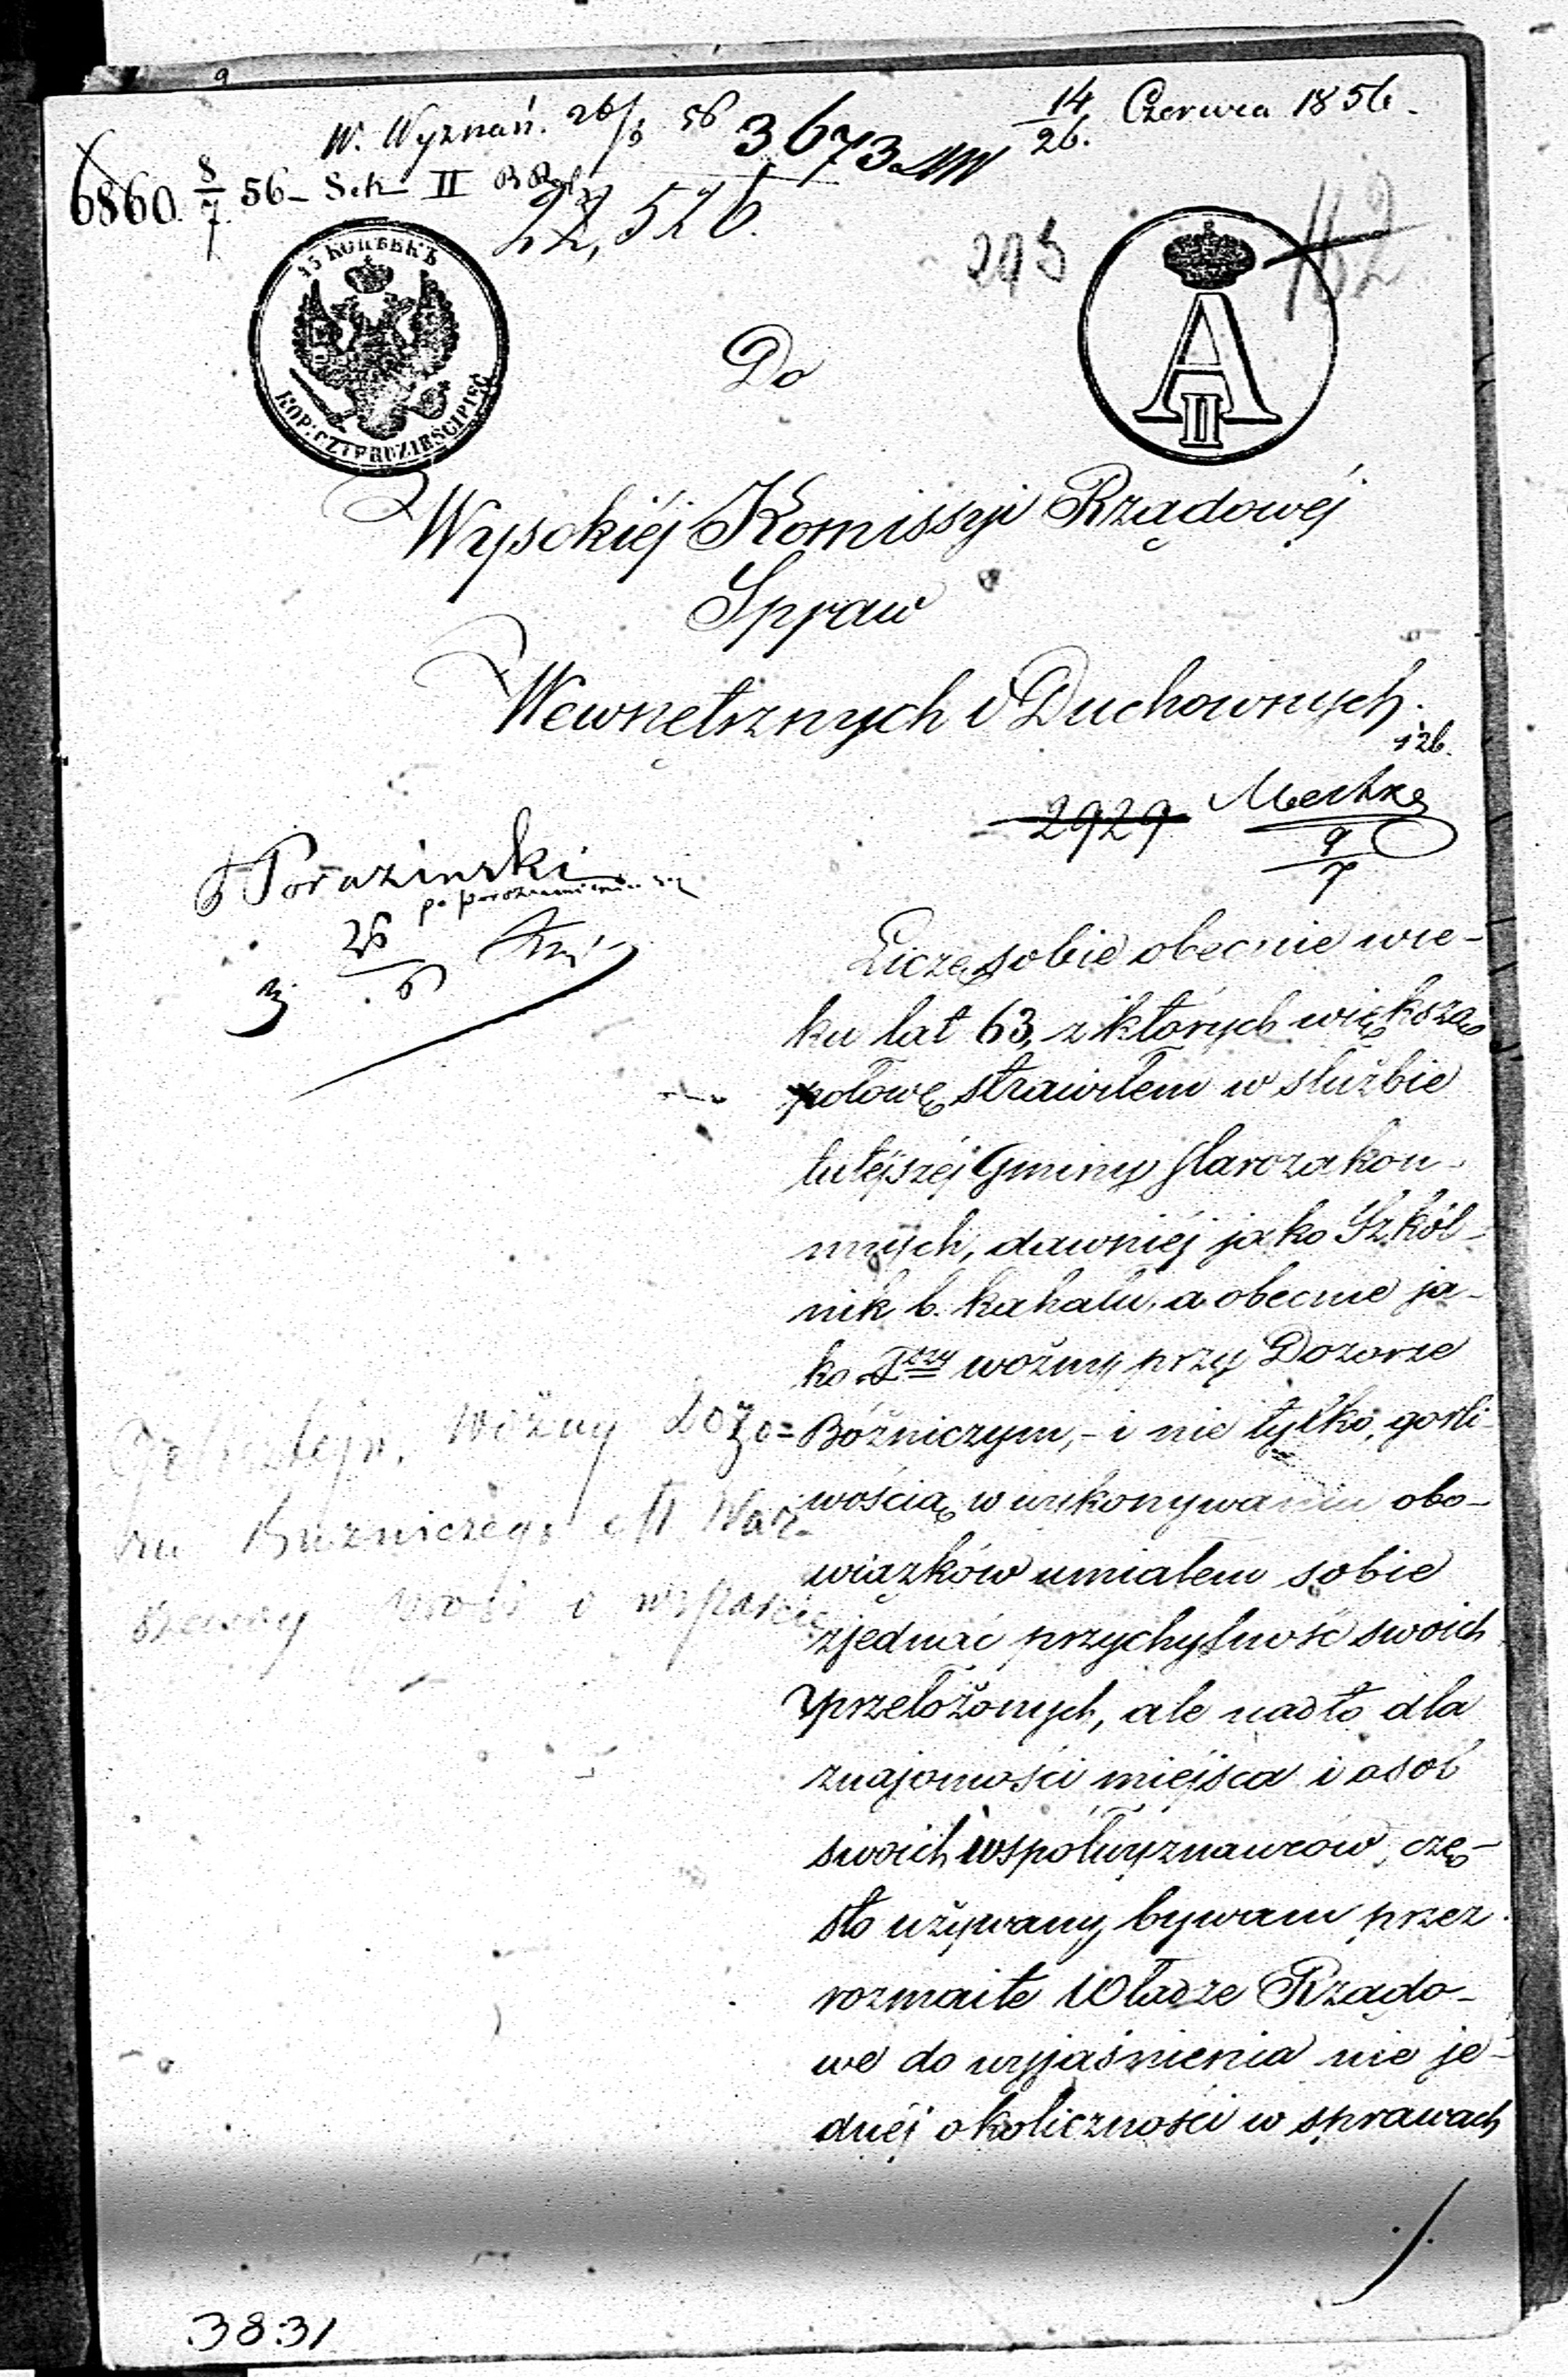 W. Wyznań. 26/6 56 3673
14/26. Czerwca 1856.
6860. 8/7 56 - Sek II
22,526.
293
162
45 КОПѢЕКЪ
KOP: CZTERDZIEŚCI PIĘĆ
A II
Do
Wysokiéj Komissyi Rządowéj
Spraw
Wewnętrznych i Duchownych.
2929
9/7
Porazinski
po porozumieniu się
26/6
Liczę sobie obecnie wie-
ku lat 63, z których większą
połowę strawiłem w służbie
tutéjszéj Gminy starozakon-
nych, dawniéj jako Szkól-
nik b. kahału, a obecnie ja-
ko Iszy woźny przy Dozorze
Bóżniczym, - i nie tylko, gorli-
wością w wykonywaniu obo-
wiązków umiałem sobie
zjednać przychylność swoich
przełożonych, ale nadto dla
znajomości miéjsca i osób
swoich współwyznawców, czę-
sto używany bywam przez
rozmaite Władze Rządo-
we do wyjaśnienia nie je-
dnéj okoliczności w sprawach
woźny Dozo=
ru Bużniczego M War-
szawy prosi o wsparcie
./.
3831